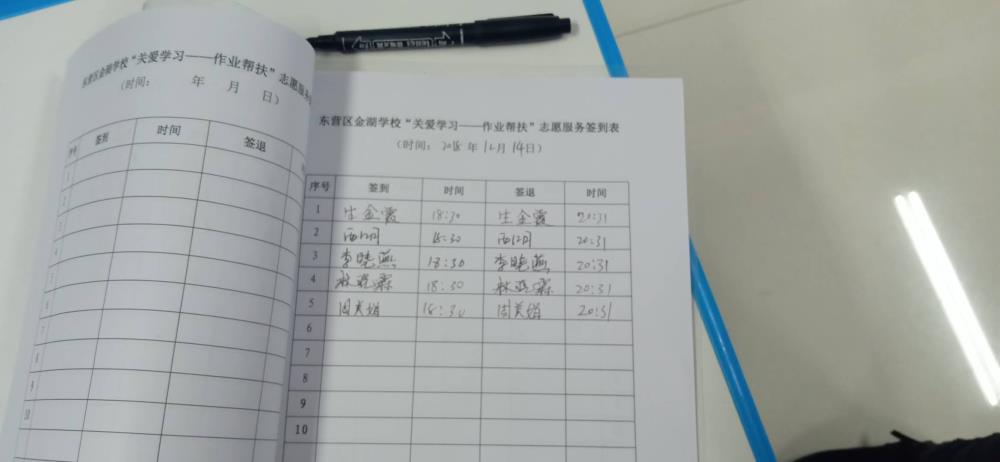 东营区金湖学校“关爱学习——作业帮扶”志愿服务
（时间： 年 月 日）
序号 签到 时间 签退
1
2
3
3
4
5
6
7
8
9
10
东营区金湖学校“关爱学习——作业帮扶”志愿服务签到表
（时间： 年 12月 14日）
序号 签到 时间 签退 时间
1 生金霞 18:30 生金霞 20:31
2 18:30 20:31
3 李晓燕 18:30 李晓燕 20:31
4 18:30 20:31
5 周美娟 18:30 周美娟 20:31
6
7
8
9
10